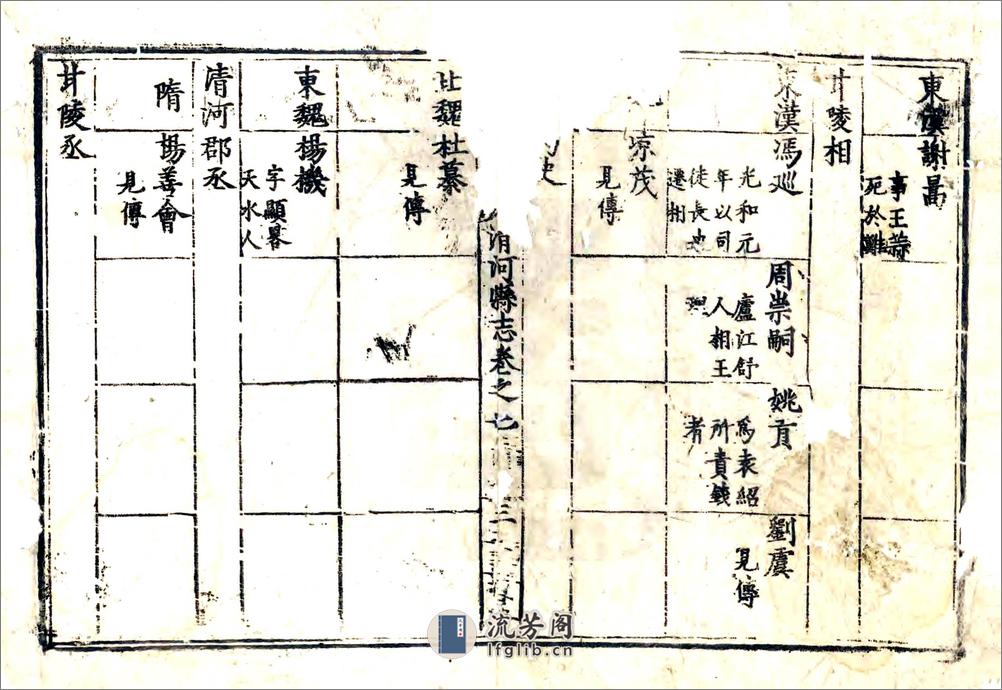 東漢謝暠
事王蒜
死於難
甘陵相
東漢馮巡
光和元
年以司
徒長史
遷相
周崇嗣
廬江舒
人相王
理
姚貢
為袁紹
所責錢
者
劉虞
見傳
涼茂
見傳
史
清河縣志卷之七
三
北魏杜纂
見傳
東魏楊機
字顯畧
天水人
清河郡丞
隋
楊善會
見傳
甘陵丞
流芳阁
lfglib.cn